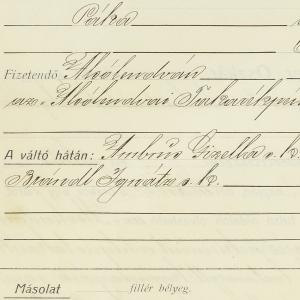 Páka
Fizetendő Alsólendván
az Alsólendvai Takarékpén
A váltó hátán: Ambrus Gizella s. k.
Brändl Ignátz s. k.
Másolat fillér bélyeg.